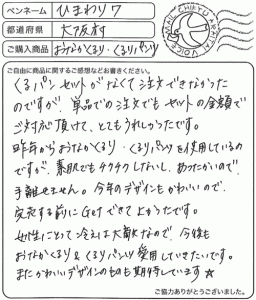 ペンネーム ひまわり7
都道府県 大阪府
ご購入商品 おなかくるり・くるりパンツ
ご自由に商品に関するご感想などお書きください。
くるパンセットがなくて注文できなかった
のですが、単品での注文でもセットの金額で
ご対応頂けて、とてもうれしかったです。
昨年からおなかくるり・くるりパンツを使用しているの
ですが、素肌でもチクチクしないし、あったかいので、
手離せません。今年のデザインもかわいいので、
完売する前にGetできてよかったです。
女性にとって冷えは大敵なので、今後も
おなかくるり&くるりパンツ愛用していきたいです。
またかわいいデザインのものも期待しています☆
ご協力ありがとうございました。